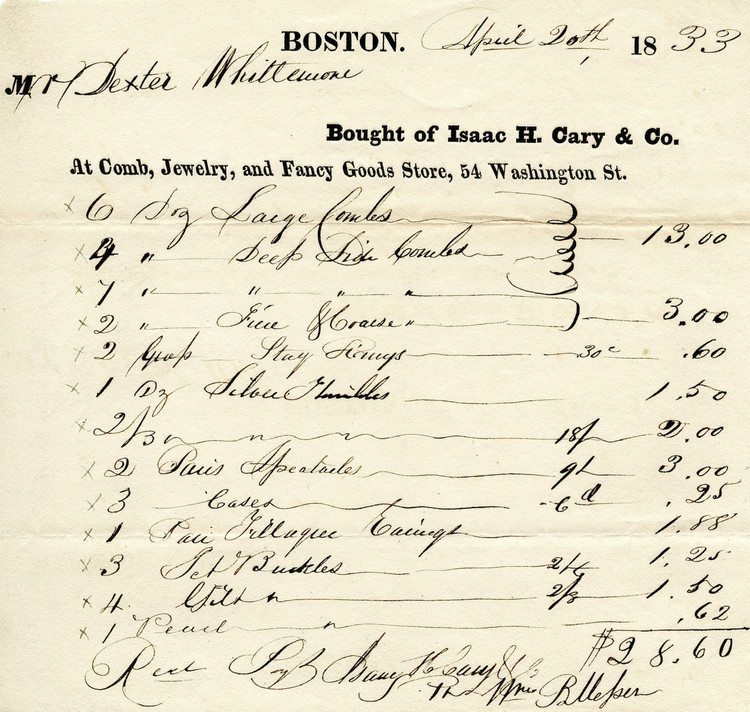 BOSTON. April 20th 1833
Mr Dexter Whittemore
Bought of Isaac H. Cary & Co.
At Comb, Jewelry, and Fancy Goods Store, 54 Washington St.
x 6 Doz Large Combs
x 4 " Deep Side Combs 13.00
x 7 " " " "
x 2 " Fine & Coarse " 3.00
x 2 Groſs Stay 30c .60
x 1 Dz Silver Thimbles 1.50
x 2/3 " " " 18/ 2.00
x 2 Pairs Spectacles 9/ 3.00
x 3 Cases 6d .25
x 1 Pair Fillagree Earings 1.88
x 3 Set Buckles 2/6 1.25
x 4 Gilt " 2/3 1.50
x 1 Pearl " .62
$28.60
Recd Payt Isaac H Cary & Co
Wm B Messer